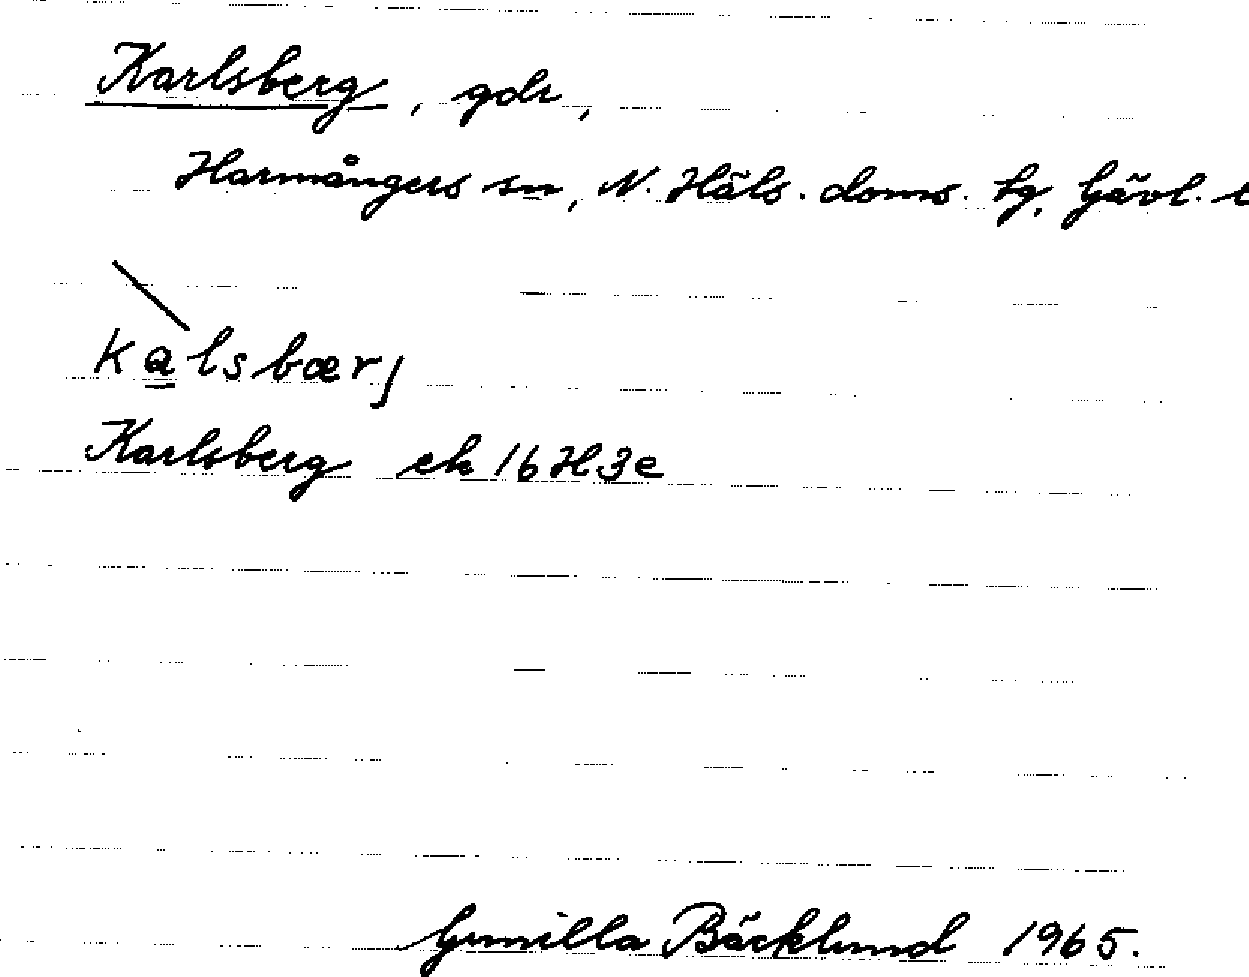 Karlsberg, gdr,
Harmångers sn, N. Häls. doms. tg, Gävl. l
kalsbærj
Karlsberg ek 16H3e
Gunilla Bäcklund 1965.